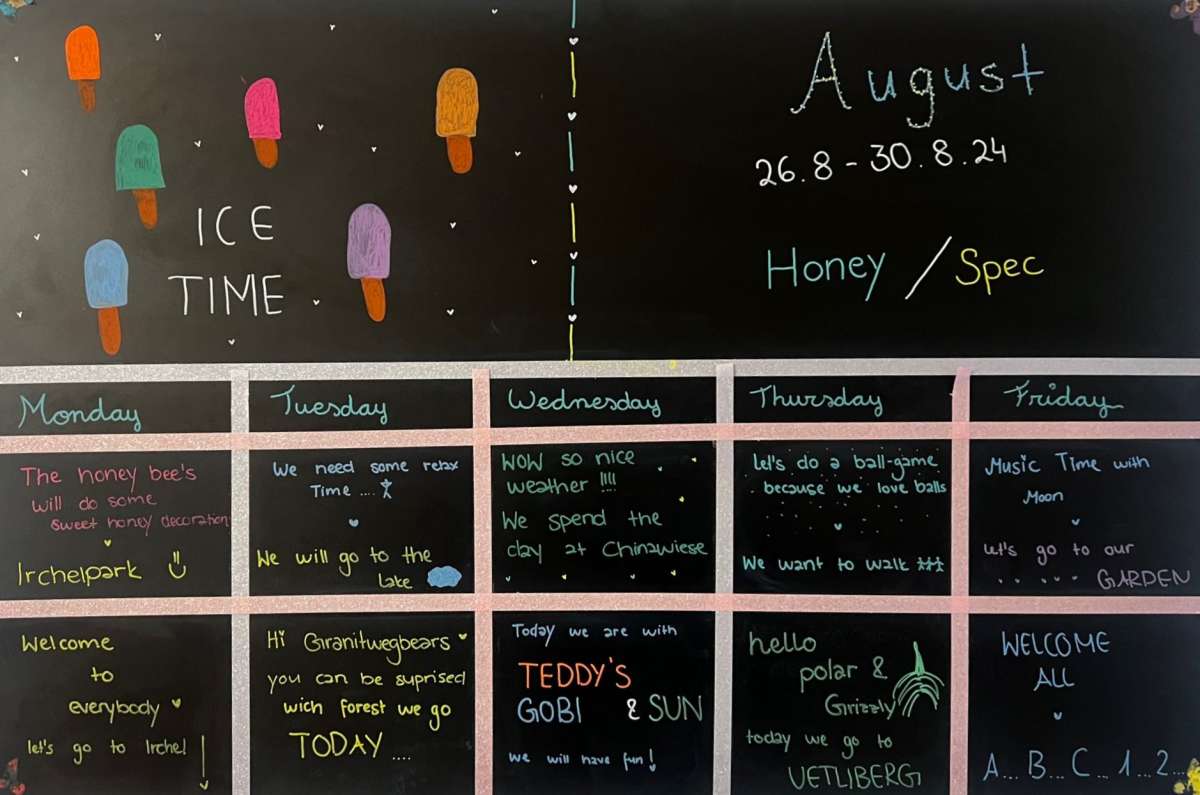 ICE
TIME
August
26.8 - 30.8.24
Honey / Spec
Monday
Tuesday
Wednesday
Thursday
Friday
The honey bee's
will do some
sweet honey decoration
Irchelpark
We need some relax
Time ....
We will go to the
Lake
WOW so nice
weather !!!!
We spend the
day at Chinawiese
Let's do a ball-game
because we love balls
We want to walk
Music Time with
Moon
Let's go to our
...... GARDEN
Welcome
to
everybody
let's go to Irchel
Hi Granitwegbears
you can be suprised
wich forest we go
TODAY ....
Today we are with
TEDDY'S
GOBI & SUN
we will have fun!
hello
polar &
Grizzly
today we go to
UETLIBERG
WELCOME
ALL
A... B... C... 1... 2...